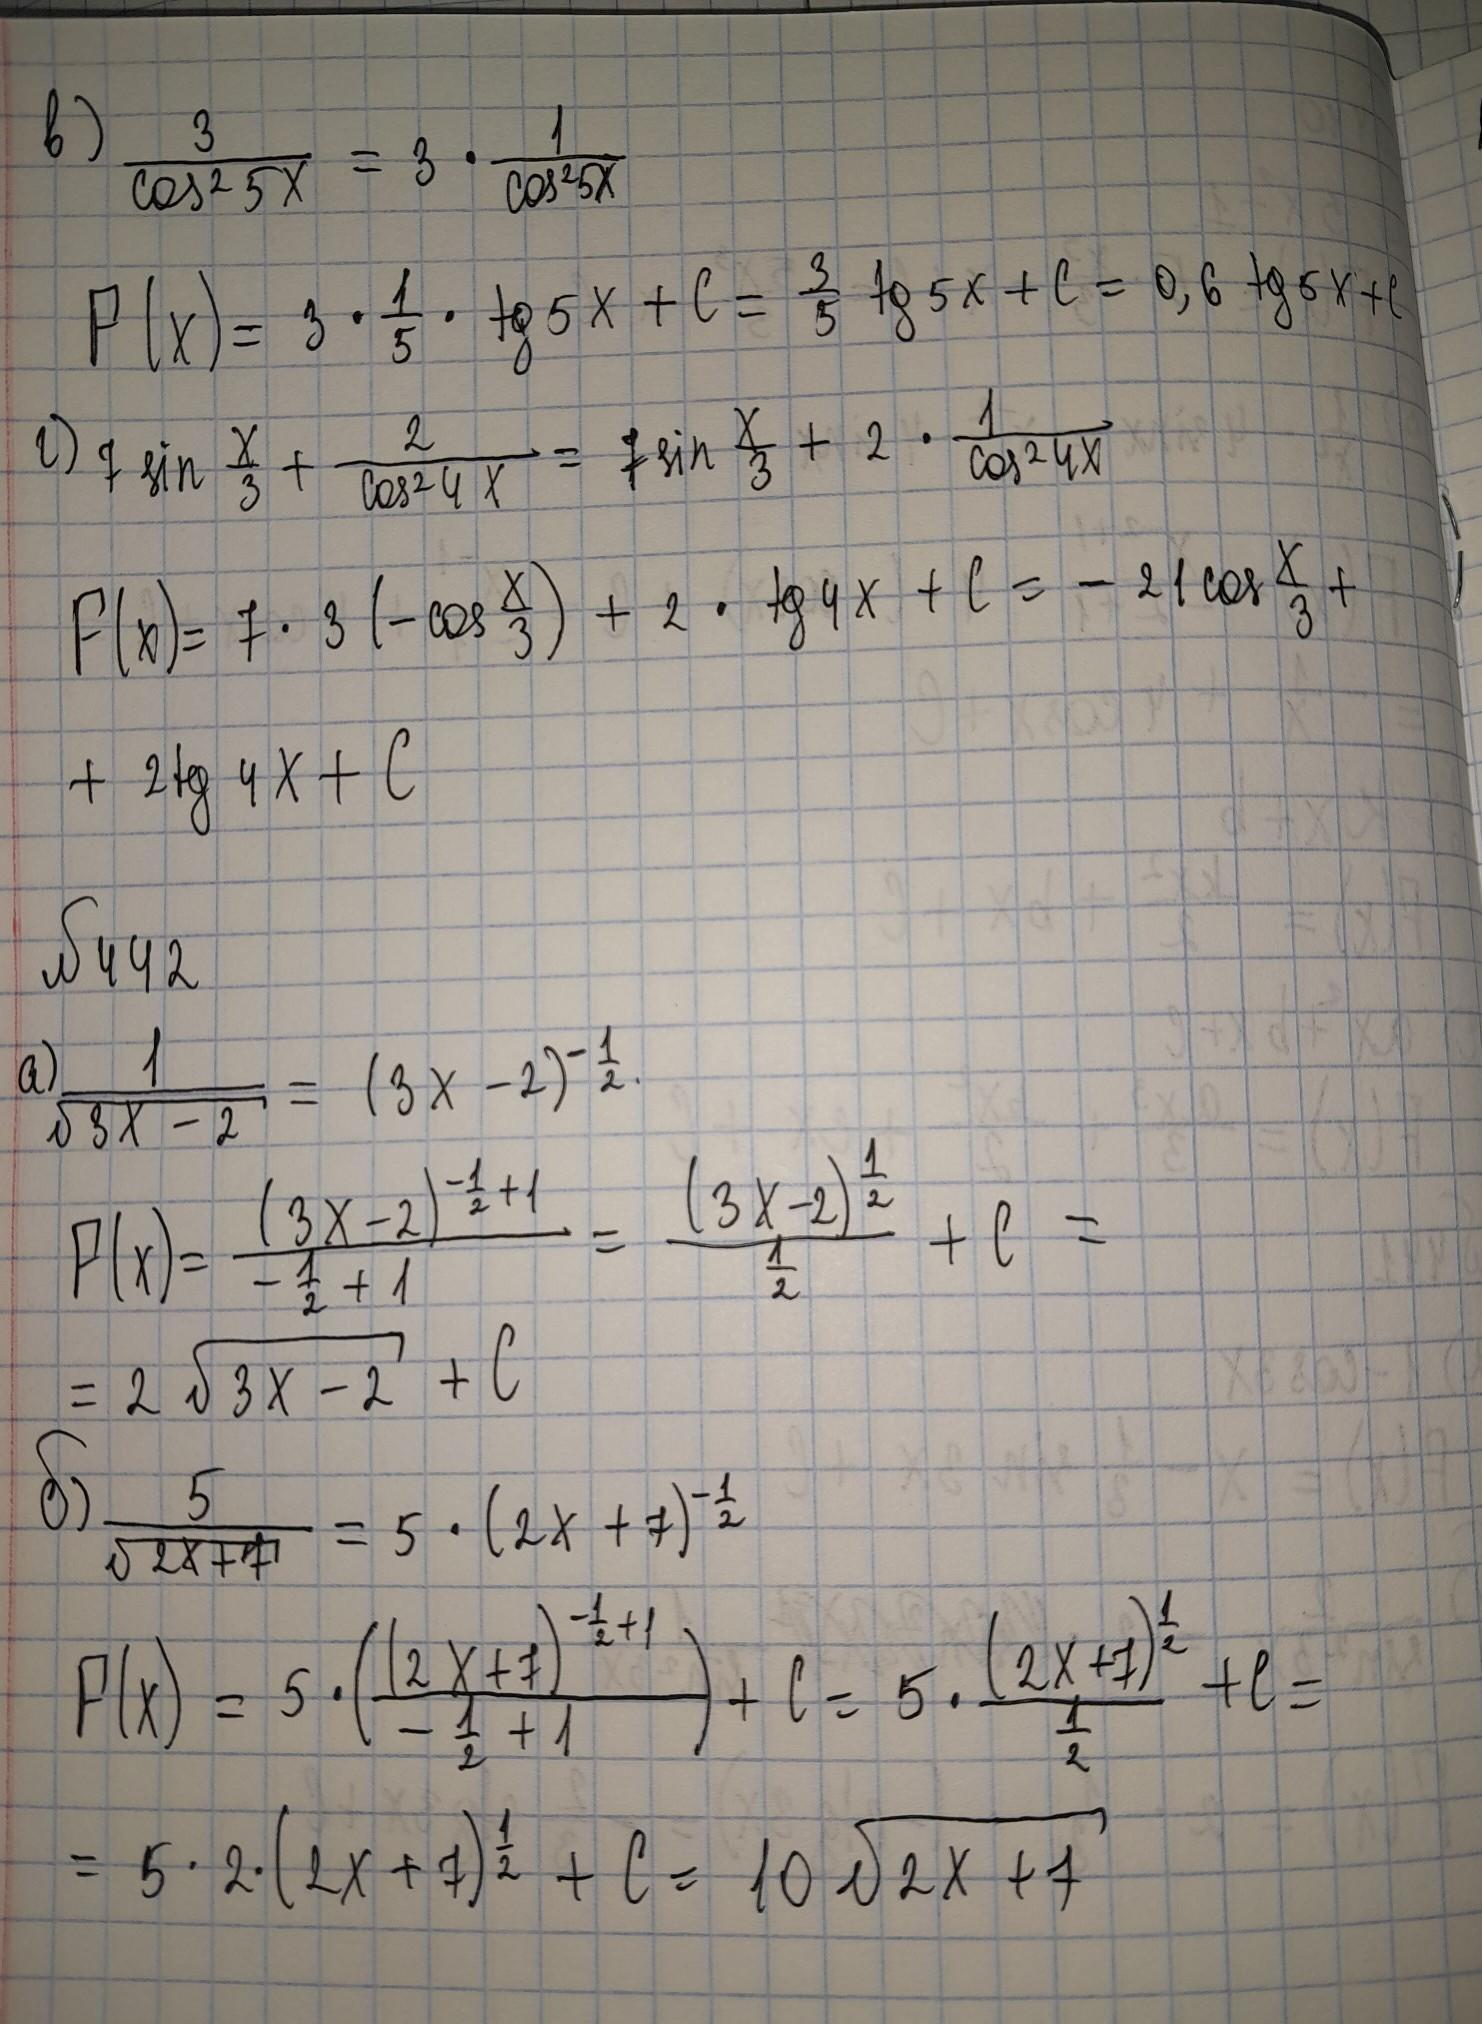 в) 3/cos²5x = 3 · 1/cos²5x
F(x) = 3 · 1/5 · tg 5x + C = 3/5 tg 5x + C = 0,6 tg 5x + C
г) 7 sin x/3 + 2/cos²4x = 7 sin x/3 + 2 · 1/cos²4x
F(x) = 7 · 3 (-cos x/3) + 2 · tg 4x + C = - 21 cos x/3 +
+ 2 tg 4x + C
№ 442
а) 1/√(3x - 2) = (3x - 2)^(-1/2).
F(x) = (3x - 2)^(-1/2 + 1)/(-1/2 + 1) = (3x - 2)^(1/2)/(1/2) + C =
= 2 √(3x - 2) + C
б) 5/√(2x + 7) = 5 · (2x + 7)^(-1/2)
F(x) = 5 · ((2x + 7)^(-1/2 + 1)/(-1/2 + 1)) + C = 5 · (2x + 7)^(1/2)/(1/2) + C =
= 5 · 2 · (2x + 7)^(1/2) + C = 10 √(2x + 7)